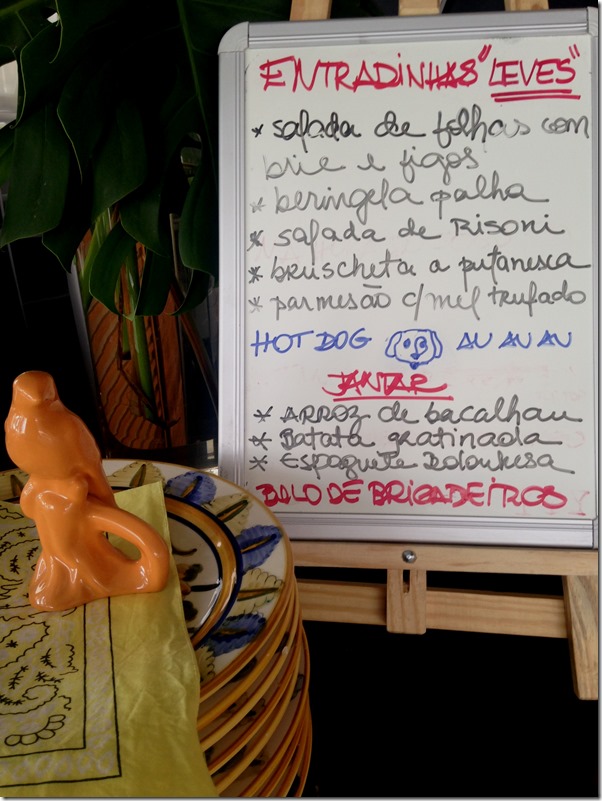 ENTRADINHAS "LEVES"
* salada de folhas com
brie e figos
* beringela palha
* salada de Risoni
* bruscheta a putanesca
* parmesão c/mel trufado
HOT DOG AU AU AU
JANTAR
* ARROZ de bacalhau
* Batata gratinada
* Espaguete Bolonhesa
BOLO DE BRIGADEIROS